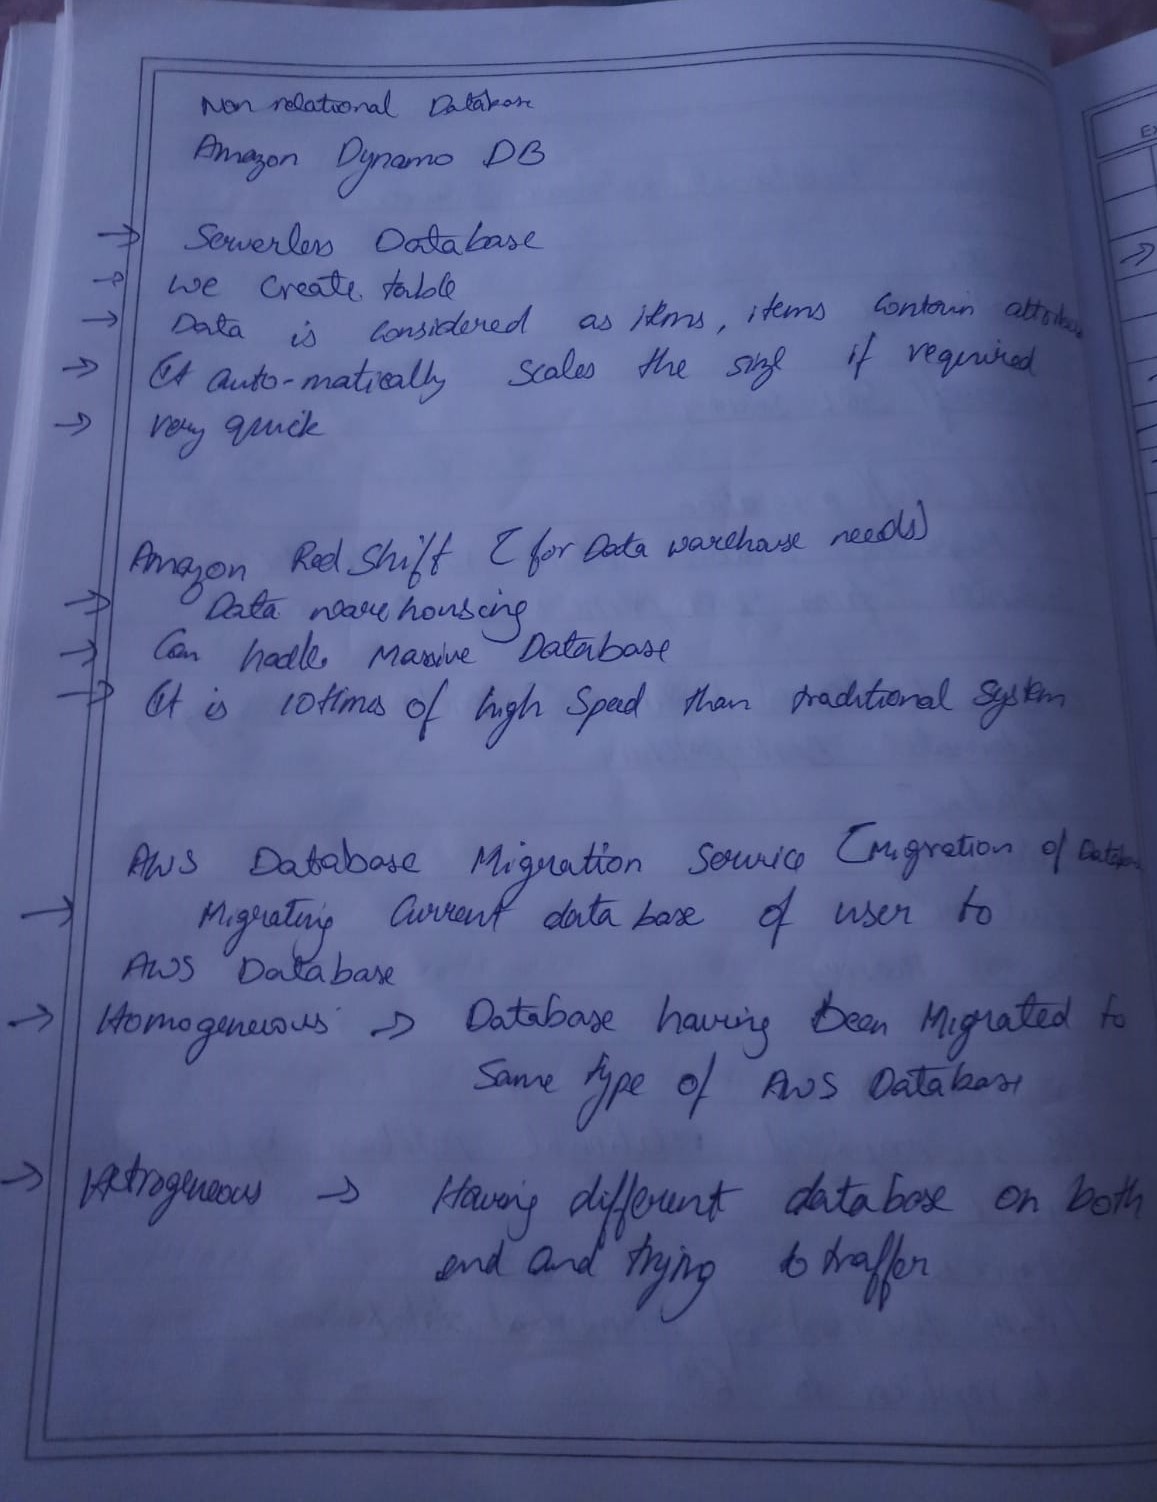 Non relational Database
Amazon Dynamo DB
→ Serverless Database
→ We Create table
→ Data is Considered as items, items Contain
→ It auto-matically Scales the size if required
→ Very quick
Amazon Red Shift [for Data warehouse needs]
→ Data ware housing
→ Can hadle Massive Database
→ It is 10 times of high Speed than traditional System
AWS Database Migration Service [Migration of
→ Migrating Current data base of user to
AWS Database
→ Homogeneous → Database having Been Migrated to
Same type of AWS Database
→ Hetrogeneous → Having different database on both
end and trying to traffer